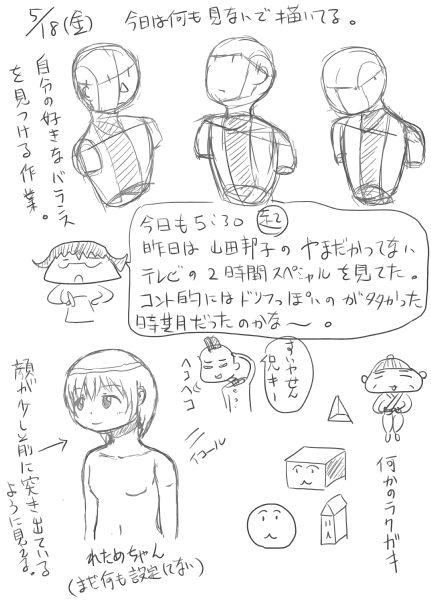 5/18(金)
今日は何も見ないで描いてる。
自分の好きなバランス
を見つける作業。
今日も5:30 起
昨日は山田邦子のやまだかつてない
テレビの2時間スペシャルを見てた。
コント的にはドリフっぽいのが多かった
時期だったのかな〜。
顔が少し前に突き出ている
ように見える。
ヘコヘコ
すいやせん
兄キー
イコール
何かのラクガキ
れためちゃん
(まだ何も設定してない)